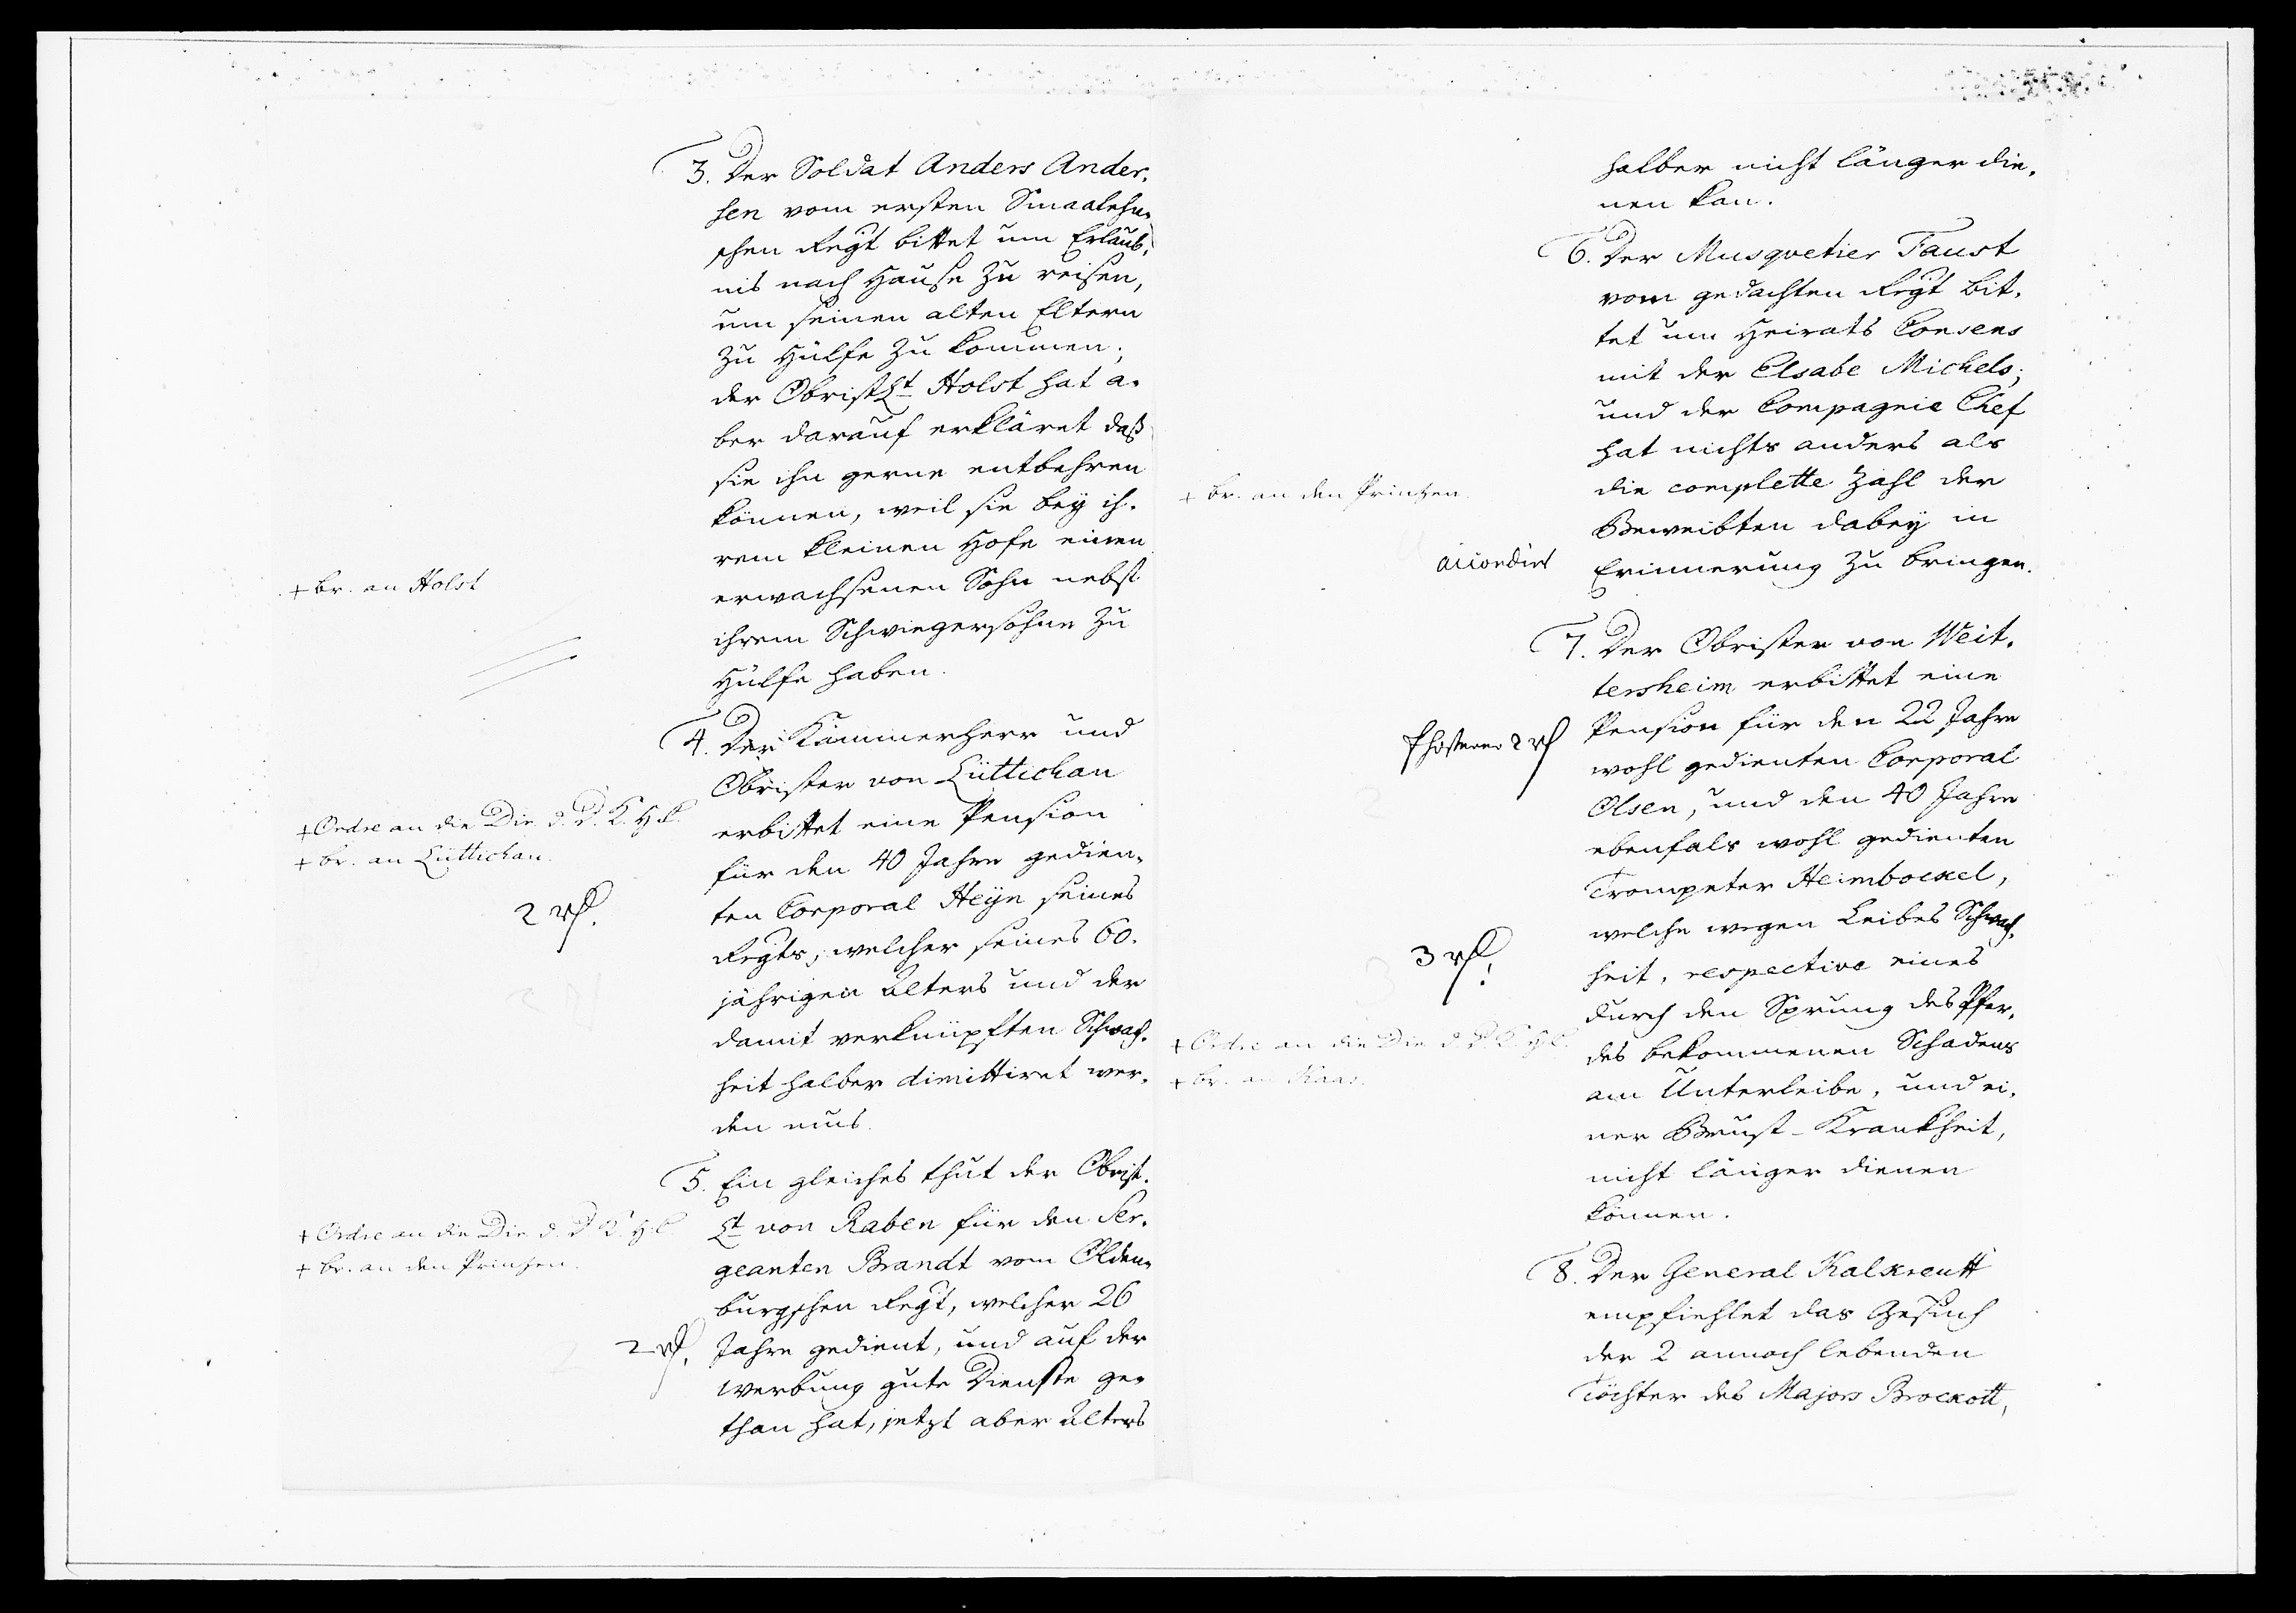 3. Der Soldat Anders Ander,
sen vom ersten Smaalehn-
schen Regt bittet um Erlaub,
nis nach Hause zu reisen,
um seinen alten Eltern
zu Hülfe zu kommen;
der ObristLt Holst hat a-
ber darauf erkläret daß
sie ihn gerne entbehren
können, weil sie bey ih-
rem kleinen Hofe einen
erwachsenen Sohn nebst
ihrem Schwiegersohne zu
Hülfe haben.
+ br. an Holst
4. Der Kammerherr und
Obrister von Lüttichau
erbittet eine Pension
für den 40 Jahre gedien-
ten Corporal Heyn seines
Regts, welcher seines 60-
jährigen Alters und der
damit verknüpften Schwach-
heit halber dimittiret wer-
den mus.
+ Ordre an die Dir. d. D. K. H. C.
+ br. an Lüttichau.
2 rd.
5. Ein gleiches thut der Obrist-
Lt von Raben für den Ser-
geanten Brandt vom Olden-
burgschen Regt, welcher 26
Jahre gedient, und auf der
Werbung gute Dienste ge-
than hat, jetzt aber Alters
+ Ordre an die Dir. d. D. K. H. C.
+ br. an den Prinzen.
2 rd.
halber nicht länger die-
nen kan.
6. Der Musqvetier Faust
vom gedachten Regt bit-
tet um Heirats Consens
mit der Elsabe Michels;
und der Compagnie Chef
hat nichts anders als
die complette Zahl der
Beweibten dabey in
Erinnerung zu bringen.
+ br. an den Printzen.
accordirt
7. Der Obrister von Weit-
tersheim erbittet eine
Pension für den 22 Jahre
wohl gedienten Corporal
Olsen, und den 40 Jahre
ebenfals wohl gedienten
Trompeter Heimbockel,
welche wegen Leibes Schwach-
heit, respective eines
durch den Sprung des Pfer-
des bekommenen Schadens
am Unterleibe, und ei-
ner Brust-Krankheit,
nicht länger dienen
können.
2 rd
3 rd.
+ Ordre an die Dir. d. D. K. H. C.
+ br. an Kaas.
8. Der General Kalkreutt
empfiehlet das Gesuch
der 2 annoch lebenden
Töchter des Majors Brockott,